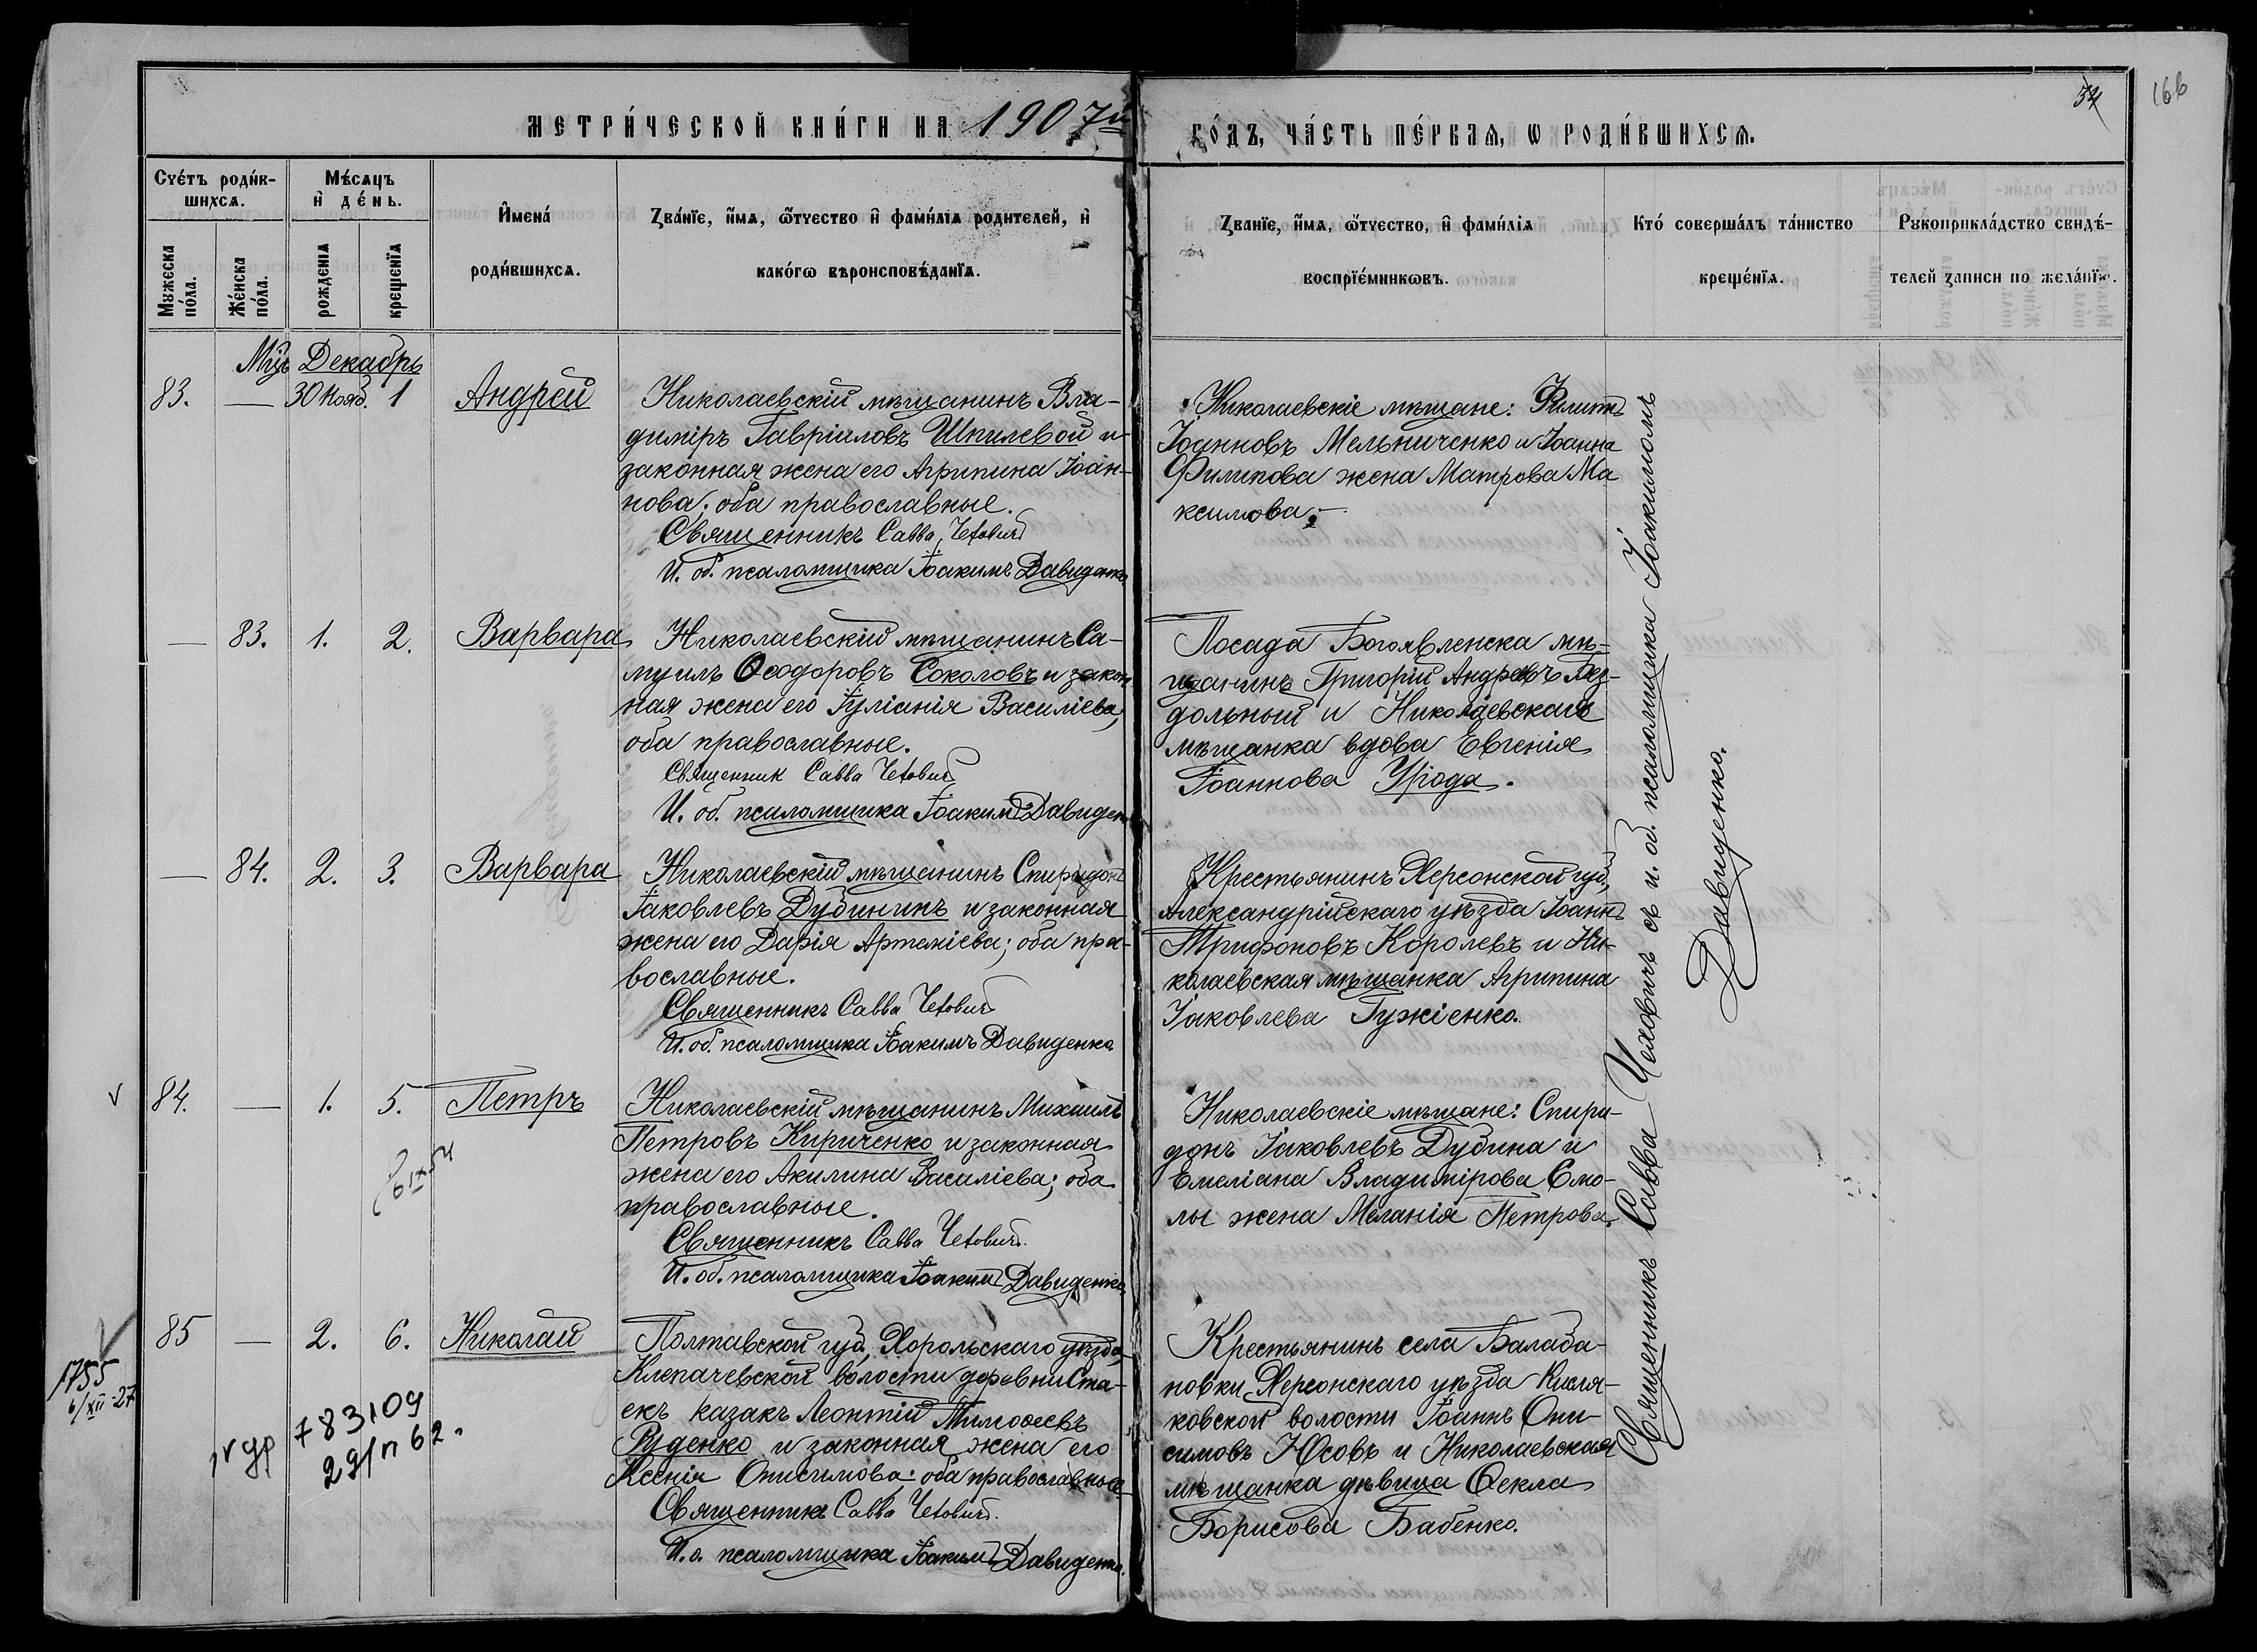 МЕТРИ́ЧЕСКОЙ КНИ́ГИ НА 1907й
ГО́ДЪ, ЧА́СТЬ ПЕ́РВАѦ, Ѡ РОДИ́ВШИХСѦ.
166
Счéтъ роди́в-
шихсѧ.
Мѣ́сѧцъ
и҆ де́нь.
Мꙋжеска
по́ла.
Же́нска
по́ла.
рождéнїѧ
крещéнїѧ
И҆мена́
роди́вшихсѧ.
Зва́нїе, и҆́мѧ, ѻ҆́тчество и҆ фами́лїѧ родителей, и҆
како́гѡ вѣроисповѣ́данїѧ.
Зва́нїе, и҆́мѧ, ѻ҆́тчество, и҆ фами́лїѧ
воспрїе́мникѡвъ.
Кто́ совершáлъ тáинство
крещéнїѧ.
Рꙋкоприкла́дство свидѣ́-
телей записи по желáнїю.
Мцъ Декабрь
83. — 30 Нояб. 1 Андрей
Николаевскій мѣщанинъ Вла-
диміръ Гавріиловъ Шпилевой и
законная жена его Агрипина Іоан-
нова; оба православные.
Священникъ Савва Чехович
И. об. псаломщика Іоакимъ Давиденко
Николаевскіе мѣщане: Филиппъ
Іоанновъ Мельниченко и Іоанна
Филипова жена Матрова Ма
ксимова.—
— 83. 1. 2. Варвара
Николаевскій мѣщанинъ Са-
муилъ Ѳеодоровъ Соколовъ и закон
ная жена его Іуліанія Василіева,
оба православные.
Священник Савва Чехович
И. об. псаломщика Іоакимъ Давиден
Посада Богоявленска мѣ-
щанинъ Григорій Андреевъ Без-
дольный и Николаевская
мѣщанка вдова Евгенія
Іоаннова
— 84. 2. 3. Варвара
Николаевскій мѣщанинъ Спиридонъ
Іаковлевъ Дубининъ и законная
жена его Дарія Артеміева; оба пра-
вославные.
Священникъ Савва Чехович
И. об. псаломщика Іоакимъ Давиденко
Крестьянинъ Херсонской губ,
Александрійскаго уѣзда Іоаннъ
Трифоновъ Королевъ и Ни-
колаевская мѣщанка Агрипина
Іаковлева Гужіенко.
84. — 1. 5. Петръ
Николаевскій мѣщанинъ Михаилъ
Петровъ Кириченко и законная
жена его Акилина Василіева; оба
православные.
Священникъ Савва Чехович.
И. об. псаломщика Іоакимъ Давиденко
Николаевскіе мѣщане: Спири-
донъ Іаковлевъ Дубина и
Емеліана Владимірова Смо-
лы жена Меланія Петрова.
85 — 2. 6. Николай
1755
6/XII-27
783109
Полтавской губ, Хорольскаго уѣзда,
Клепачевской волости деревни Ста-
екъ казакъ Леонтій Тимоѳеевъ
Руденко и законная жена его
Ксенія Онисимова; оба православные
Священникъ Савва Чехович.
И. о. псаломщика Іоакимъ Давиденко.
Крестьянинъ села Балаба-
новки Херсонскаго уѣзда Кисля-
ковской волости Іоаннъ Они-
симовъ Юсовъ и Николаевская
мѣщанка дѣвица Ѳекла
Борисова Бабенко.
Священникъ Савва Чеховичъ съ и. об. псаломщика Іоакимомъ
Давиденко.